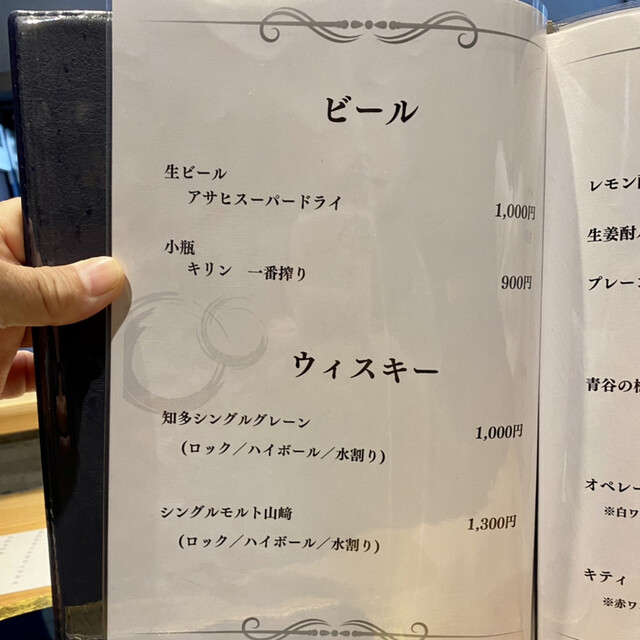 ビール
生ビール
アサヒスーパードライ 1,000円
小瓶
キリン 一番搾り 900円
ウィスキー
知多シングルグレーン 1,000円
(ロック／ハイボール／水割り)
シングルモルト山﨑 1,300円
(ロック／ハイボール／水割り)
レモン
生姜酎
プレー
青谷の
オペレー
※白ワ
キティ
※赤ワ